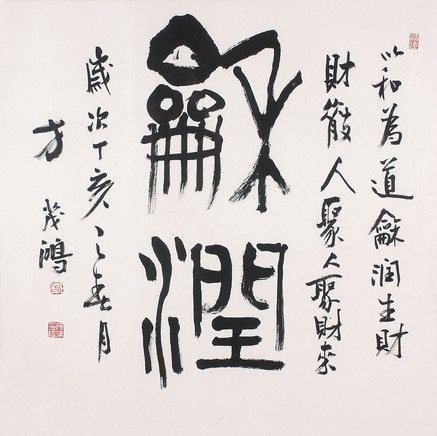 以和為道龢润生財
財散人聚人聚財來
龢
潤
歲次丁亥之春月
方茂鴻